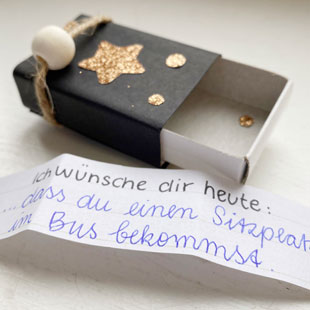 Ich wünsche dir heute:
... dass du einen Sitzplatz
im Bus bekommst